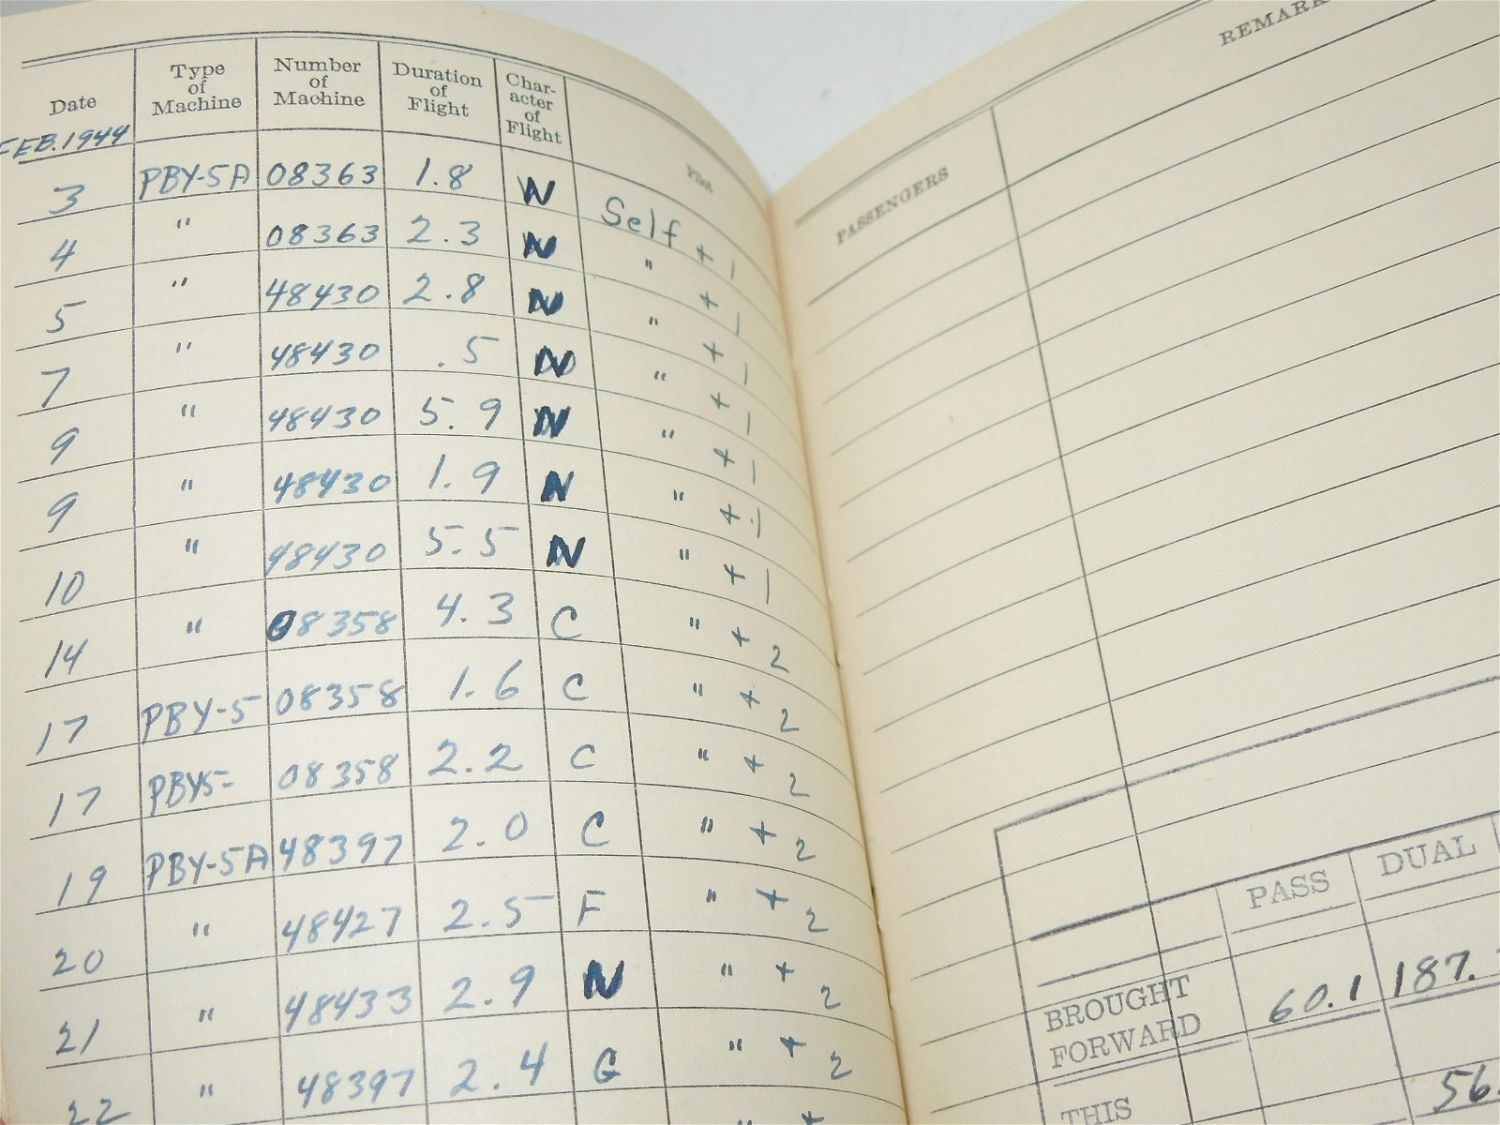 Date Type of Machine Number of Machine Duration of Flight Character of Flight Pilot
FEB. 1944
3 PBY-5A 08363 1.8 N Self + 1
4 " 08363 2.3 N " + 1
5 " 48430 2.8 N " + 1
7 " 48430 .5 N " + 1
9 " 48430 5.9 N " + 1
9 " 48430 1.9 N " + 1
10 " 48430 5.5 N " + 1
14 " 08358 4.3 C " + 2
17 PBY-5 08358 1.6 C " + 2
17 PBY5- 08358 2.2 C " + 2
19 PBY-5A 48397 2.0 C " + 2
20 " 48427 2.5 F " + 2
21 " 48433 2.9 N " + 2
22 " 48397 2.4 G " + 2
PASSENGERS
PASS DUAL
BROUGHT FORWARD 60.1 187.
THIS 56.